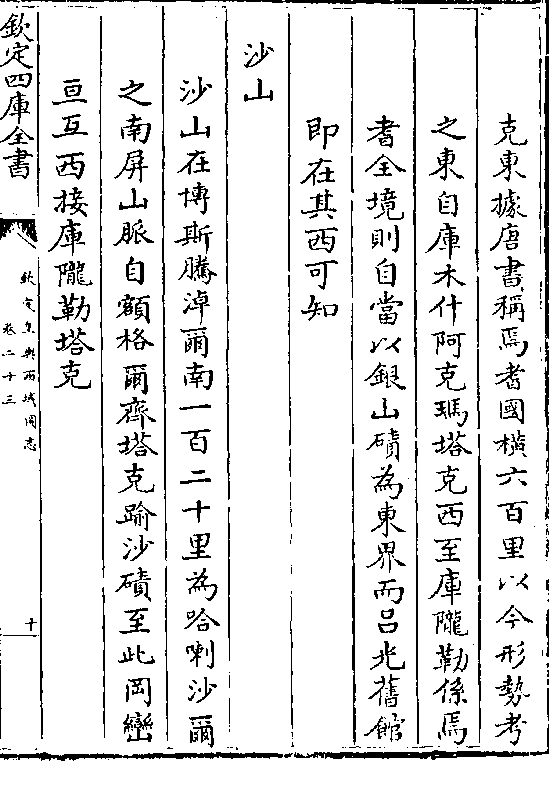 克東據唐書稱焉耆國橫六百里以今形勢考
之東自庫木什阿克瑪塔克西至庫隴勒係焉
耆全境則自當以銀山磧為東界而呂光舊館
即在其西可知
沙山
沙山在博斯騰淖爾南一百二十里為哈喇沙爾
之南屏山脈自額格爾齊塔克踰沙磧至此岡巒
亘互西接庫隴勒塔克
欽定四庫全書
欽定皇輿西域圖志
卷二十三
十